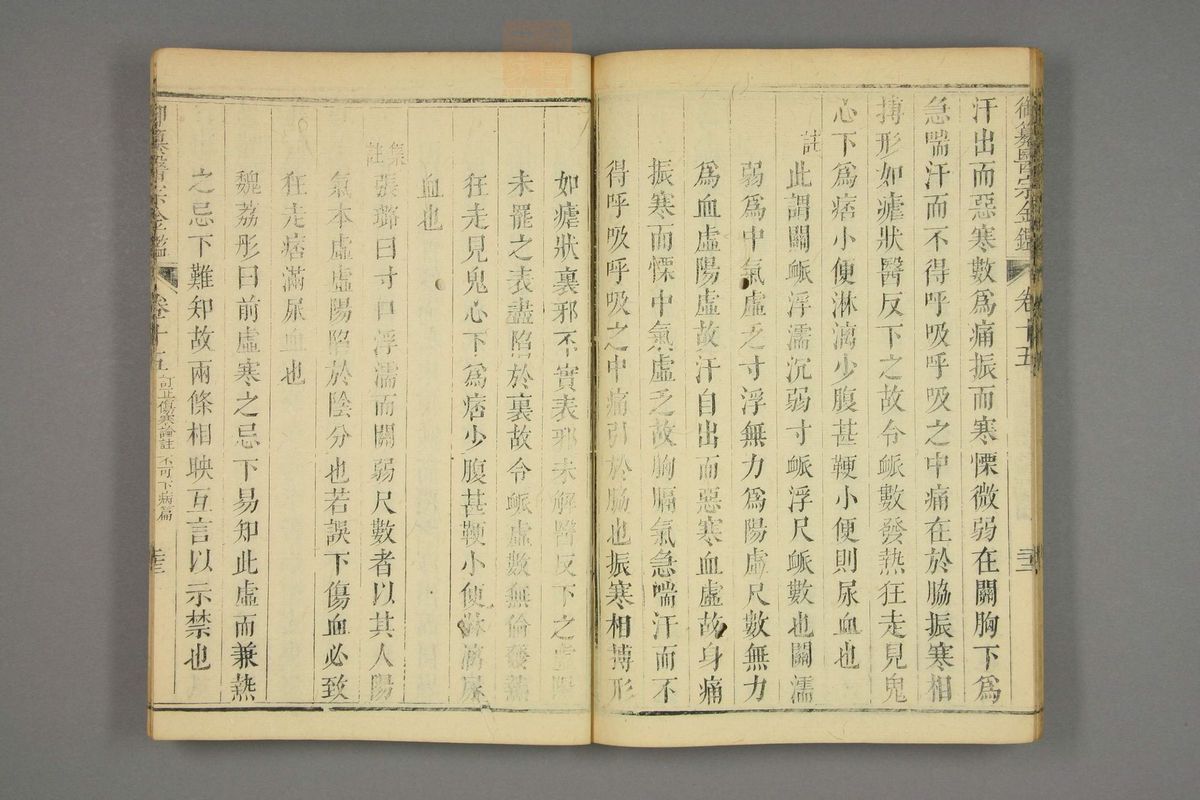 御纂醫宗金鑑 卷十五
汗出而惡寒數爲痛振而寒慄微弱在關胸下爲
急喘汗而不得呼吸呼吸之中痛在於脇振寒相
搏形如瘧狀醫反下之故令脈數發熱狂走見鬼
心下爲痞小便淋漓少腹甚鞕小便則尿血也
註 此謂關脈浮濡沉弱寸脈浮尺脈數也關濡
弱爲中氣虛乏寸浮無力爲陽虛尺數無力
爲血虛陽虛故汗自出而惡寒血虛故身痛
振寒而慄中氣虛乏故胸膈氣急喘汗而不
得呼吸呼吸之中痛引於脇也振寒相搏形
如瘧狀裏邪不實表邪未解醫反下之虛陽
未罷之表盡陷於裏故令脈虛數無倫發熱
狂走見鬼心下爲痞少腹甚鞕小便淋漓尿
血也
集註 張璐曰寸口浮濡而關弱尺數者以其人陽
氣本虛虛陽陷於陰分也若誤下傷血必致
狂走痞滿尿血也
魏荔彤曰前虛寒之忌下易知此虛而兼熱
之忌下難知故兩條相映互言以示禁也
御纂醫宗金鑑 卷十五 訂正傷寒論註 不可下病篇